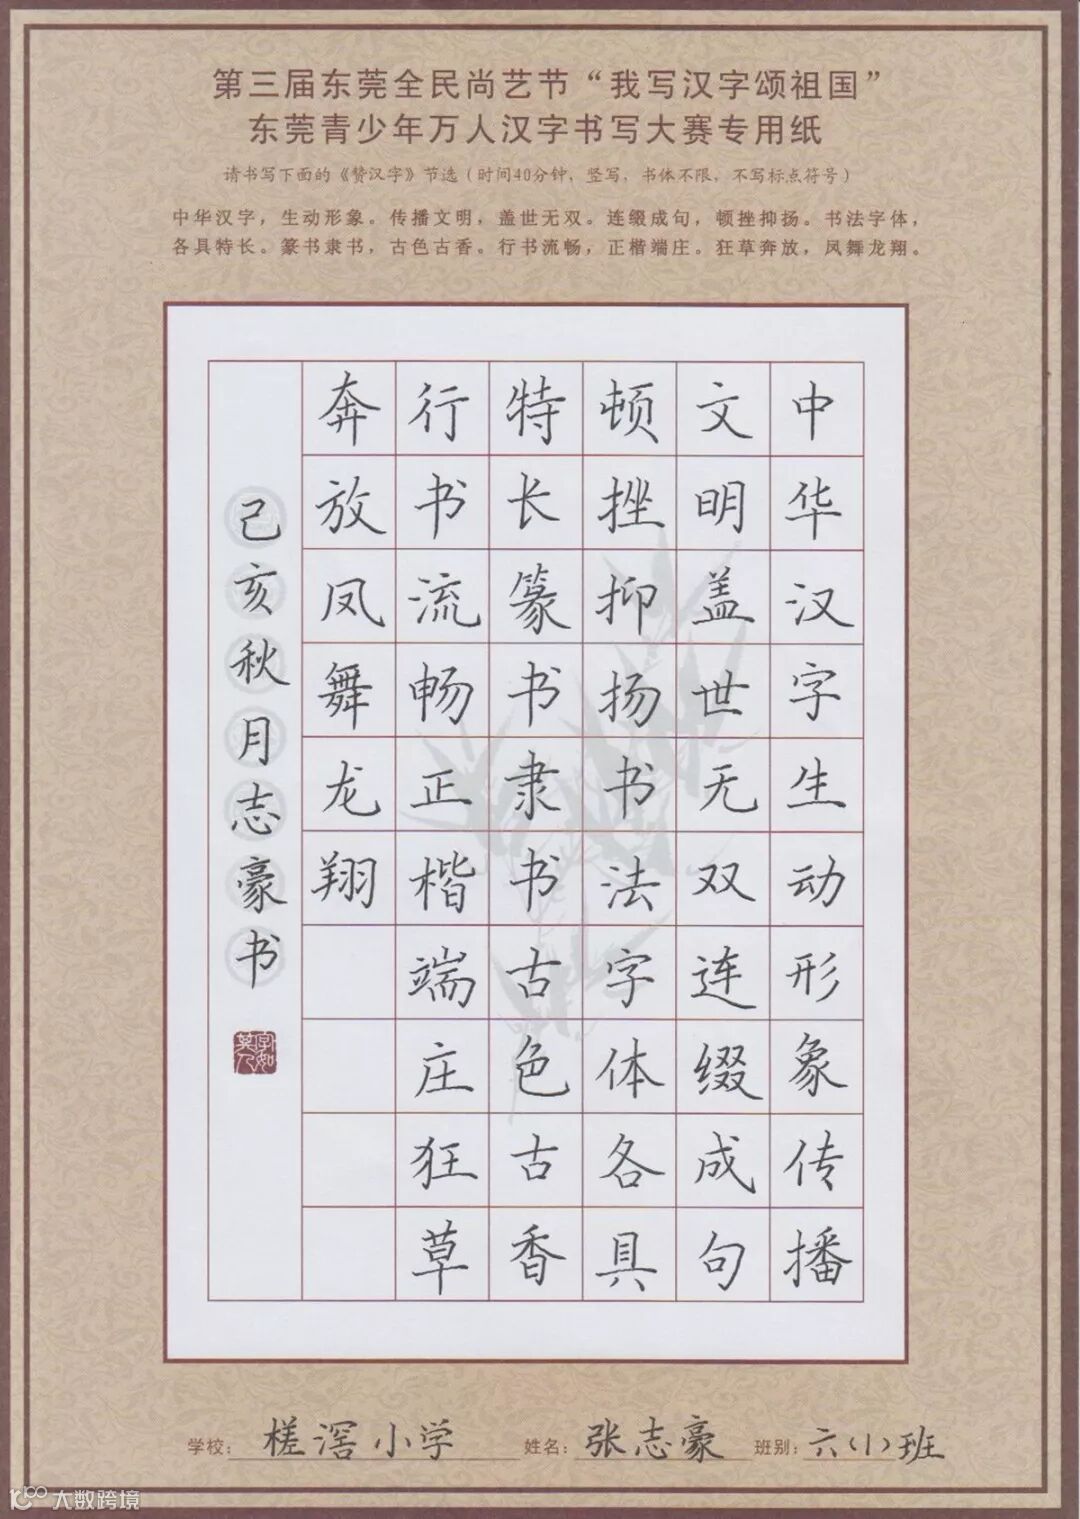 第三届东莞全民尚艺节“我写汉字颂祖国”
东莞青少年万人汉字书写大赛专用纸
请书写下面的《赞汉字》节选（时间40分钟，竖写，书体不限，不写标点符号）
中华汉字，生动形象。传播文明，盖世无双。连缀成句，顿挫抑扬。书法字体，
各具特长。篆书隶书，古色古香。行书流畅，正楷端庄。狂草奔放，凤舞龙翔。
中华汉字生动形象传播
文明盖世无双连缀成句
顿挫抑扬书法字体各具
特长篆书隶书古色古香
行书流畅正楷端庄狂草
奔放凤舞龙翔
己亥秋月志豪书
字如其人
学校：槎滘小学 姓名：张志豪 班别：六（小）班
大数跨境